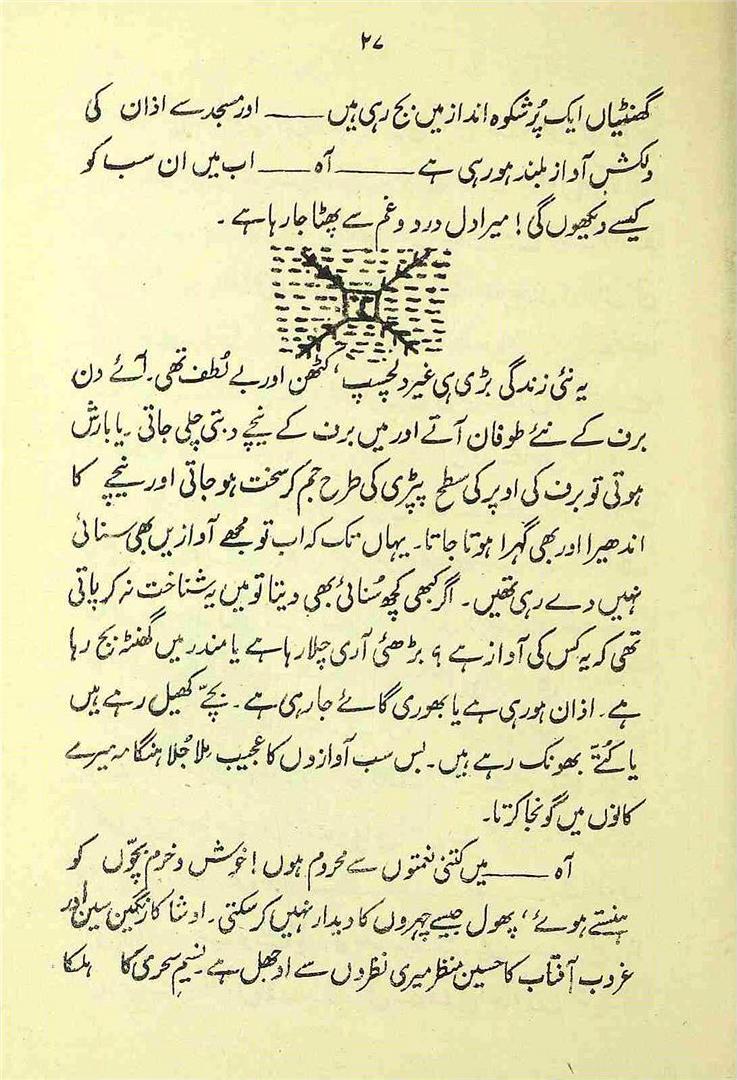 ۲۷
گھنٹیاں ایک پُر شکوہ انداز میں بج رہی ہیں ــــــ اور مسجد سے اذان کی
دلکش آواز بلند ہو رہی ہے ــــــ آہ ــــــ اب میں ان سب کو
کیسے دیکھوں گی! میرا دل درد و غم سے پھٹا جا رہا ہے۔
۴
یہ نئی زندگی بڑی ہی غیر دلچسپ، کٹھن اور بے لُطف تھی۔ آئے دن
برف کے نئے طوفان آتے اور میں برف کے نیچے دبتی چلی جاتی۔ یا بارش
ہوتی تو برف کی اوپر کی سطح پپڑی کی طرح جم کر سخت ہو جاتی اور نیچے کا
اندھیرا اور بھی گہرا ہوتا جاتا۔ یہاں تک کہ اب تو مجھے آوازیں بھی سنائی
نہیں دے رہی تھیں۔ اگر کبھی کچھ سُنائی بھی دیتا تو میں یہ شناخت نہ کر پاتی
تھی کہ یہ کس کی آواز ہے؟ بڑھئی آری چلا رہا ہے یا مندر میں گھنٹہ بج رہا
ہے۔ اذان ہو رہی ہے یا بھوری گائے جا رہی ہے۔ بچّے کھیل رہے ہیں
یا کُتّے بھونک رہے ہیں۔ بس سب آوازوں کا عجیب مِلا جُلا ہنگامہ میرے
کانوں میں گونجا کرتا۔
آہ ــــــ میں کتنی نعمتوں سے محروم ہوں! خوش و خرم بچّوں کو
ہنستے ہوئے، پھول جیسے چہروں کا دیدار نہیں کر سکتی۔ اوشا کا رنگین سین اور
غروب آفتاب کا حسین منظر میری نظروں سے اوجھل ہے۔ نسیمِ سحری کا ہلکا